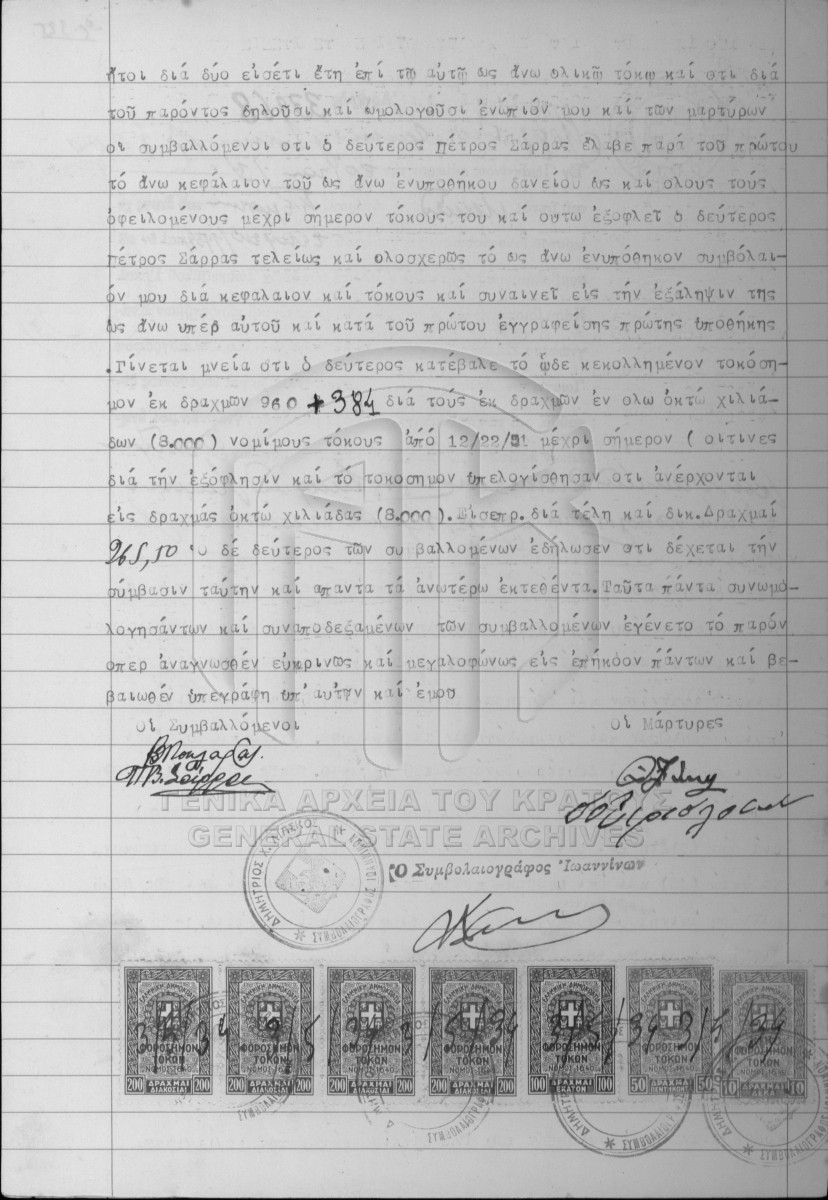 ἤτοι διά δύο εἰσέτι ἔτη ἐπί τῷ αὐτῷ ὡς ἄνω ολικῷ τόκῳ καί οτι διά
τοῦ παρόντος δηλοῦσι καί ωμολογοῦσι ἐνώπιόν μου καί τῶν μαρτύρων
οι συμβαλλόμενοι οτι ὁ δεύτερος Πέτρος Σάρρας ἔλαβε παρά τοῦ πρώτου
τό ἄνω κεφάλαιον τοῦ ὡς ἄνω ἐνυποθήκου δανείου ὡς καί ολους τούς
ὀφειλομένους μέχρι σήμερον τόκους του καί ουτω ἐξοφλεῖ ὁ δεύτερος
Πέτρος Σάρρας τελείως καί ολοσχερῶς τό ὡς ἄνω ἐνυπόθηκον συμβόλαι-
όν μου διά κεφαλαιον καί τόκους καί συναινεῖ εἰς τήν ἐξάληψιν της
ὡς ἄνω υπέρ αὐτοῦ καί κατά τοῦ πρώτου ἐγγραφείσης πρώτης ὑποθήκης
.Γίνεται μνεία οτι ὁ δεύτερος κατέβαλε τό ὧδε κεκολλημένον τοκόση-
μον ἐκ δραχμῶν 960 + 384 διά τούς ἐκ δραχμῶν ἐν ολω ὀκτώ χιλιά-
δων (8.000) νομίμους τόκους ἀπό 12/22/31 μέχρι σήμερον ( οιτινες
διά τήν ἐξόφλησιν καί τό τοκοσημον ὑπελογίσθησαν οτι ἀνέρχονται
εἰς δραχμάς ὀκτώ χιλιάδας (8.000). Εἰσεπρ. διά τέλη καί δικ. Δραχμαί
265,50 Ὁ δέ δεύτερος τῶν συ βαλλομένων ἐδήλωσεν οτι δέχεται τήν
σύμβασιν ταύτην καί απαντα τά ἀνωτέρω ἐκτεθέντα. Ταῦτα πάντα συνωμο-
λογησάντων καί συναποδεξαμένων τῶν συμβαλλομένων ἐγένετο τό παρόν
οπερ ἀναγνωσθέν εὐκρινῶς καί μεγαλοφώνως εἰς ἐπήκοον πάντων καί βε-
βαιωθέν ὑπεγράφη ὑπ' αὐτῶν καί ἐμου
οἱ Συμβαλλόμενοι οἱ Μάρτυρες
Π.Β. Σάρρας
ΓΕΝΙΚΑ ΑΡΧΕΙΑ ΤΟΥ ΚΡΑΤΟΥΣ
GENERAL STATE ARCHIVES
ΔΗΜΗΤΡΙΟΣ Χ. ΣΥΜΒΟΛΑΙΟΓΡΑΦΟΣ
Ὁ Συμβολαιογράφος Ἰωαννίνων
ΕΛΛΗΝΙΚΗ ΔΗΜΟΚΡΑΤΙΑ ΦΟΡΟΣΗΜΟΝ ΤΟΚΩΝ ΝΟΜΟΣ 1640 200 ΔΡΑΧΜΑΙ ΔΙΑΚΟΣΙΑΙ 200
ΕΛΛΗΝΙΚΗ ΔΗΜΟΚΡΑΤΙΑ ΦΟΡΟΣΗΜΟΝ ΤΟΚΩΝ ΝΟΜΟΣ 1640 200 ΔΡΑΧΜΑΙ ΔΙΑΚΟΣΙΑΙ 200
ΕΛΛΗΝΙΚΗ ΔΗΜΟΚΡΑΤΙΑ ΦΟΡΟΣΗΜΟΝ ΤΟΚΩΝ ΝΟΜΟΣ 1640 200 ΔΡΑΧΜΑΙ ΔΙΑΚΟΣΙΑΙ 200
ΕΛΛΗΝΙΚΗ ΔΗΜΟΚΡΑΤΙΑ ΦΟΡΟΣΗΜΟΝ ΤΟΚΩΝ ΝΟΜΟΣ 1640 200 ΔΡΑΧΜΑΙ ΔΙΑΚΟΣΙΑΙ 200
ΕΛΛΗΝΙΚΗ ΔΗΜΟΚΡΑΤΙΑ ΦΟΡΟΣΗΜΟΝ ΤΟΚΩΝ ΝΟΜΟΣ 1640 100 ΔΡΑΧΜΑΙ ΕΚΑΤΟΝ 100
ΕΛΛΗΝΙΚΗ ΔΗΜΟΚΡΑΤΙΑ ΦΟΡΟΣΗΜΟΝ ΤΟΚΩΝ ΝΟΜΟΣ 1640 50 ΔΡΑΧΜΑΙ ΠΕΝΤΗΚΟΝΤΑ 50
ΕΛΛΗΝΙΚΗ ΔΗΜΟΚΡΑΤΙΑ ΦΟΡΟΣΗΜΟΝ ΤΟΚΩΝ ΝΟΜΟΣ 1640 10 ΔΡΑΧΜΑΙ ΔΕΚΑ 10